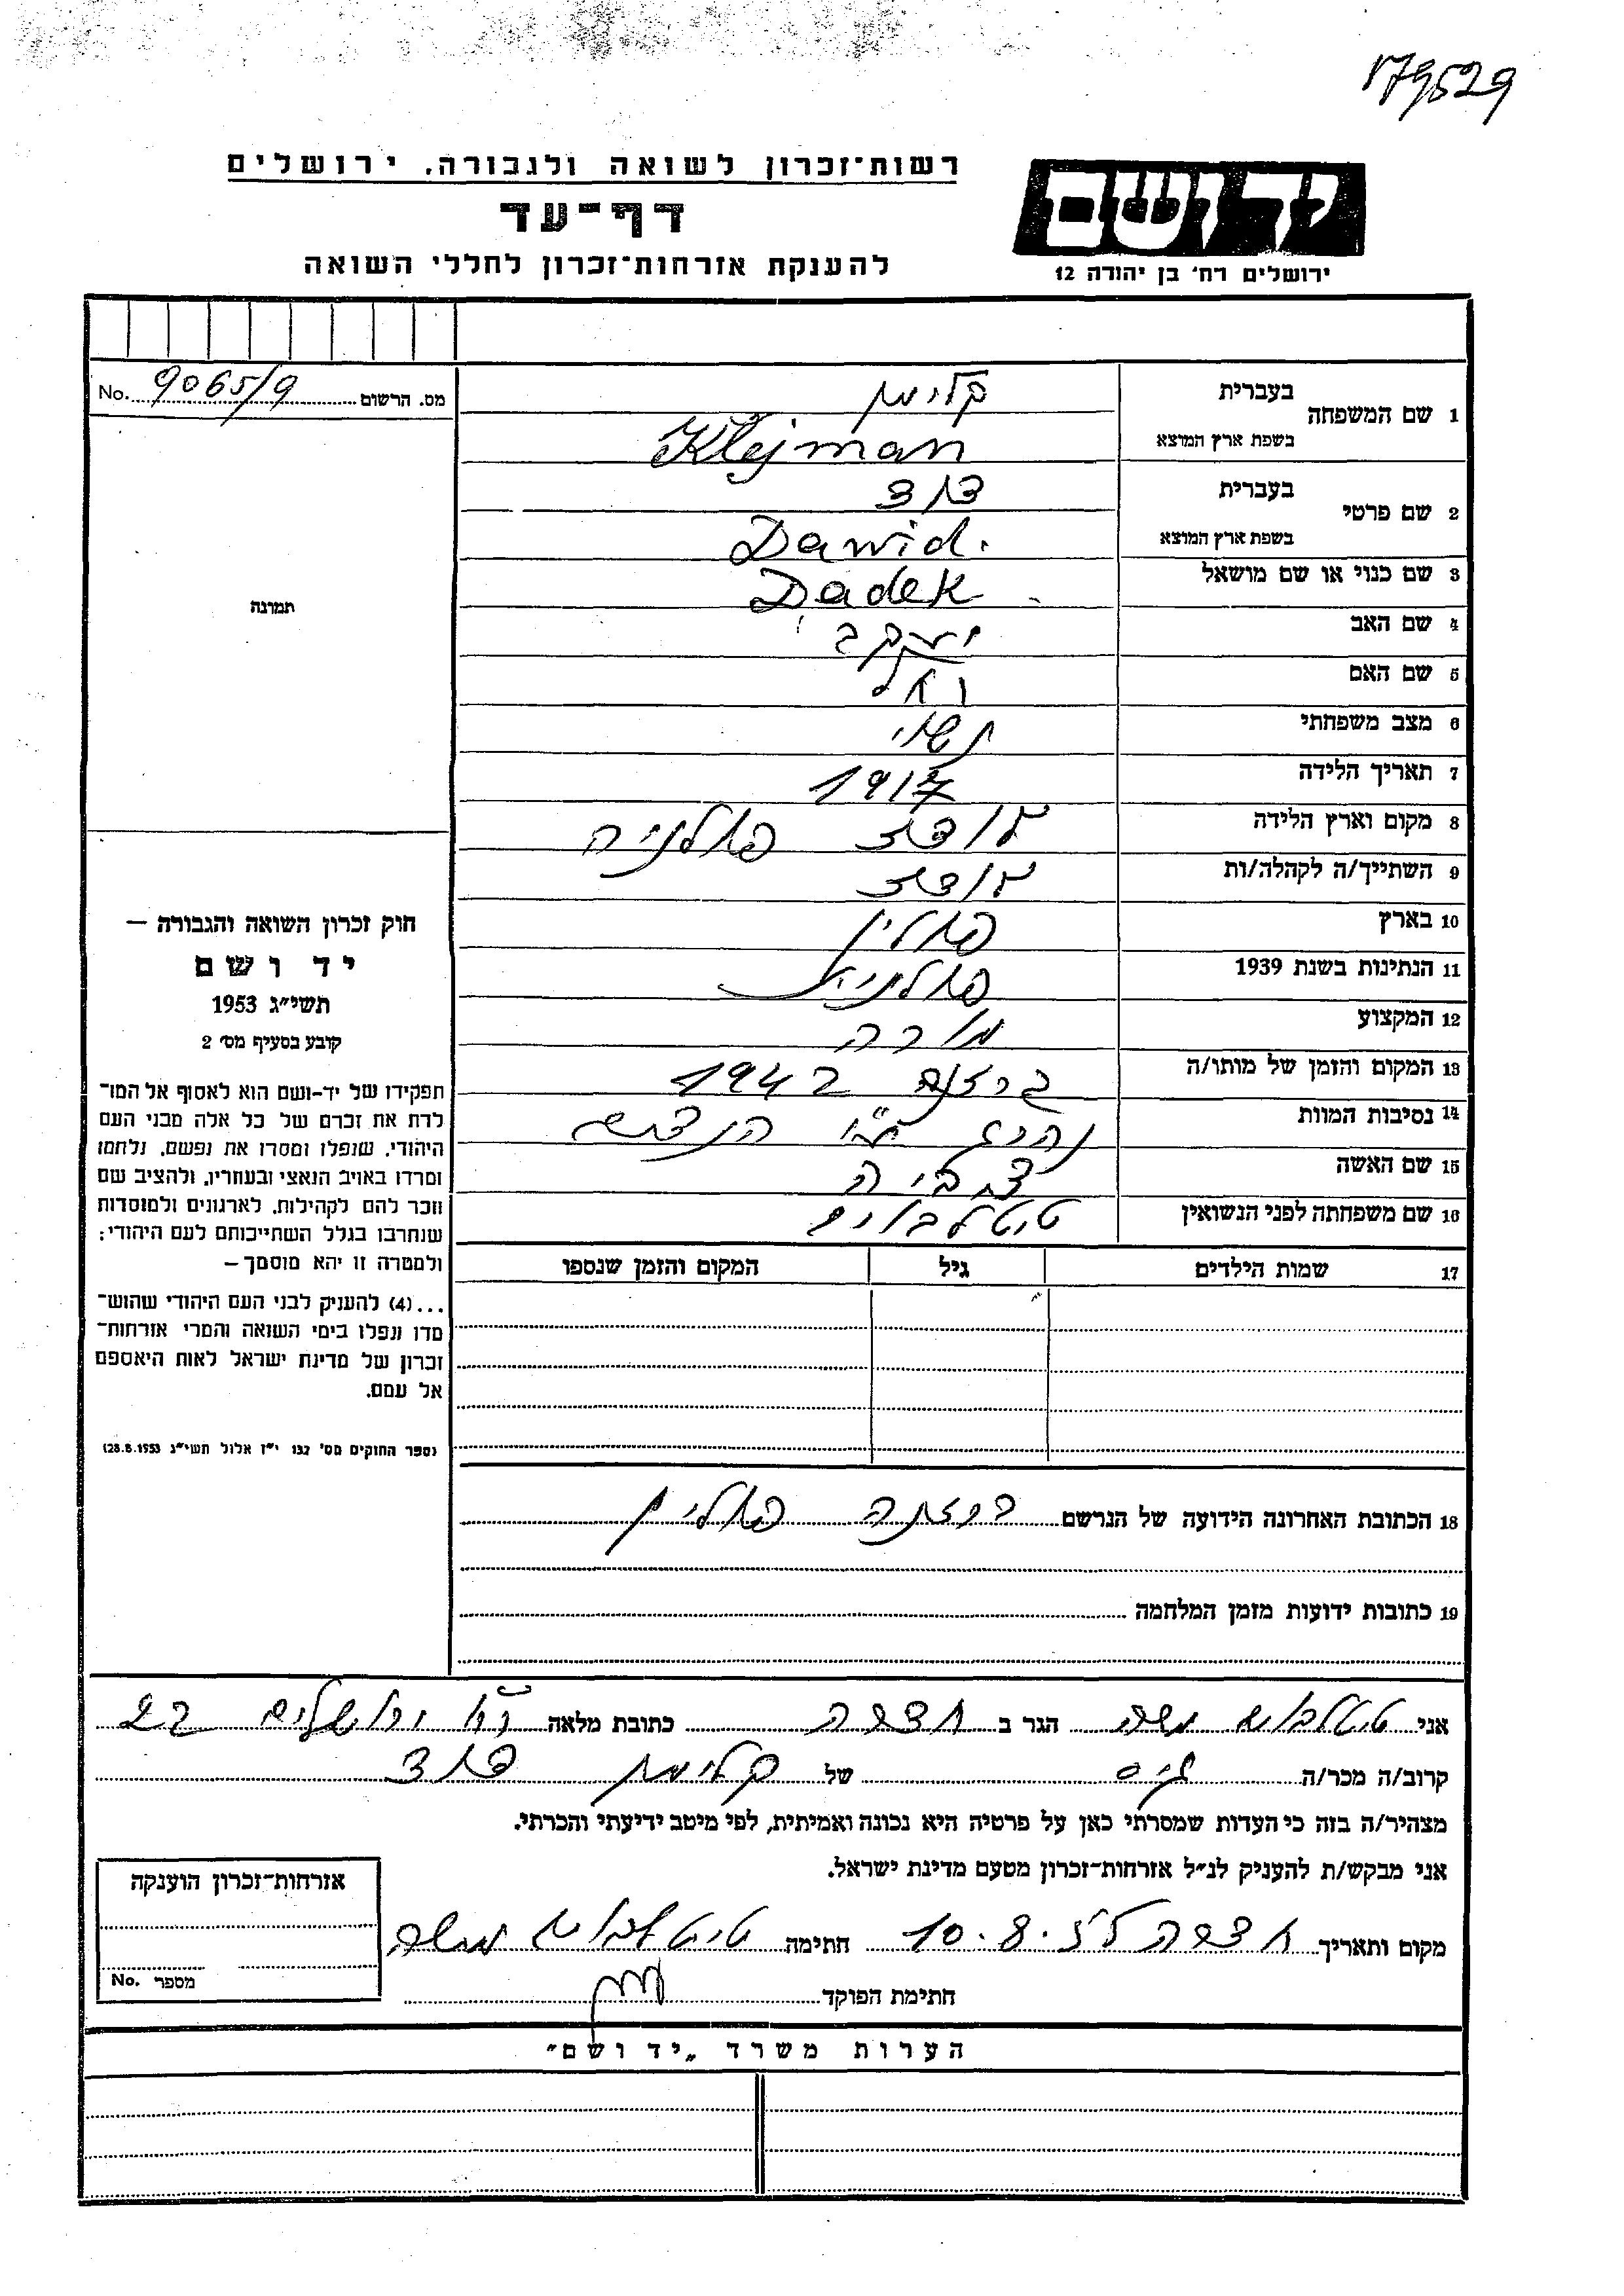 179529
רשות־זכרון לשואה ולגבורה. ירושלים
דף־עד
להענקת אזרחות־זכרון לחללי השואה
יד ושם
ירושלים רח' בן יהודה 12
מס. הרשום 9065/9 No.
1 שם המשפחה
בעברית קלימן
בשפת ארץ המוצא Klejman
2 שם פרטי
בעברית דוד
בשפת ארץ המוצא Dawid.
3 שם כנוי או שם מושאל Dadek
4 שם האב יעקב
5 שם האם
6 מצב משפחתי נשוי
7 תאריך הלידה 1917
8 מקום וארץ הלידה לודז פולניה
9 השתייך/ה לקהלה/ות לודז
10 בארץ פולין
11 הנתינות בשנת 1939 פולנית
12 המקצוע מורה
13 המקום והזמן של מותו/ה 1942
14 נסיבות המוות נהרג ע"י הנאצים
15 שם האשה צביה
16 שם משפחתה לפני הנשואין טיטלבוים
17 שמות הילדים גיל המקום והזמן שנספו
18 הכתובת האחרונה הידועה של הנרשם פולין
19 כתובות ידועות מזמן המלחמה
תמונה
חוק זכרון השואה והגבורה –
יד ושם
תשי"ג 1953
קובע בסעיף מס' 2
תפקידו של יד-ושם הוא לאסוף אל המו־
לדת את זכרם של כל אלה מבני העם
היהודי, שנפלו ומסרו את נפשם, נלחמו
ומרדו באויב הנאצי ובעוזריו, ולהציב שם
וזכר להם לקהילות, לארגונים ולמוסדות
שנחרבו בגלל השתייכותם לעם היהודי;
ולמטרה זו יהא מוסמך –
...(4) להעניק לבני העם היהודי שהוש־
מדו ונפלו בימי השואה והמרי אזרחות־
זכרון של מדינת ישראל לאות היאספם
אל עמם.
(ספר החוקים מס' 132 י"ז אלול תשי"ג 28.8.1953)
אני טיטלבוים משה הגר ב חדרה כתובת מלאה רח' ירושלים 22
קרוב/ה מכר/ה גיס של קלימן דוד
מצהיר/ה בזה כי העדות שמסרתי כאן על פרטיה היא נכונה ואמיתית, לפי מיטב ידיעתי והכרתי.
אני מבקש/ת להעניק לנ"ל אזרחות־זכרון מטעם מדינת ישראל.
מקום ותאריך חדרה 10.8.55 חתימה טיטלבוים משה
חתימת הפוקד
אזרחות־זכרון הוענקה
מספר No.
הערות משרד "יד ושם"